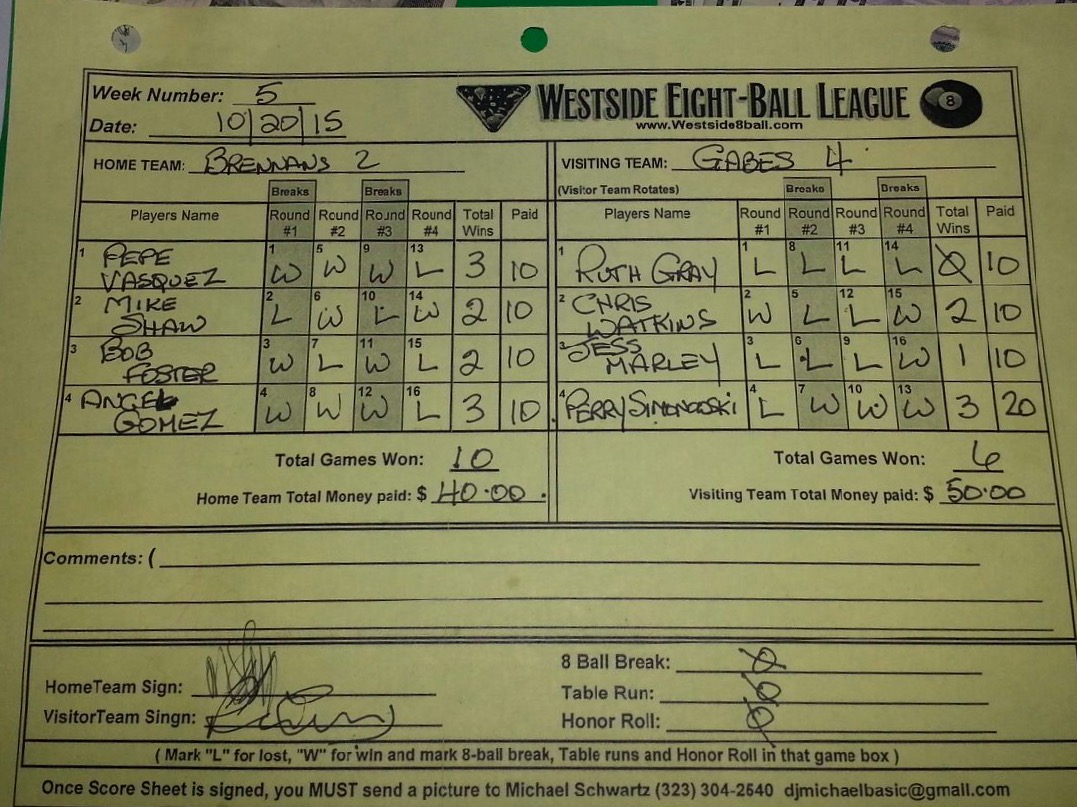 Week Number: 5
WESTSIDE EIGHT-BALL LEAGUE 8
Date: 10/20/15
www.Westside8ball.com
HOME TEAM: BRENNANS 2 VISITING TEAM: GABES 4
(Visitor Team Rotates)
Breaks Breaks Breaks Breaks
Players Name Round #1 Round #2 Round #3 Round #4 Total Wins Paid Players Name Round #1 Round #2 Round #3 Round #4 Total Wins Paid
1 PEPE VASQUEZ 1 W 5 W 9 W 13 L 3 10 1 RUTH GRAY 1 L 8 L 11 L 14 L 0 10
2 MIKE SHAW 2 L 6 W 10 L 14 W 2 10 2 CHRIS WATKINS 2 W 5 L 12 L 15 W 2 10
3 BOB FOSTER 3 W 7 L 11 W 15 L 2 10 3 JESS MARLEY 3 L 6 L 9 L 16 W 1 10
4 ANGEL GOMEZ 4 W 8 W 12 W 16 L 3 10 4 PERRY 4 L 7 W 10 W 13 W 3 20
Total Games Won: 10 Total Games Won: 6
Home Team Total Money paid: $ 40.00 Visiting Team Total Money paid: $ 50.00
Comments: (
8 Ball Break: 0
HomeTeam Sign: Table Run: 0
VisitorTeam Singn: Honor Roll: 0
( Mark "L" for lost, "W" for win and mark 8-ball break, Table runs and Honor Roll in that game box )
Once Score Sheet is signed, you MUST send a picture to Michael Schwartz (323) 304-2540 djmichaelbasic@gmail.com